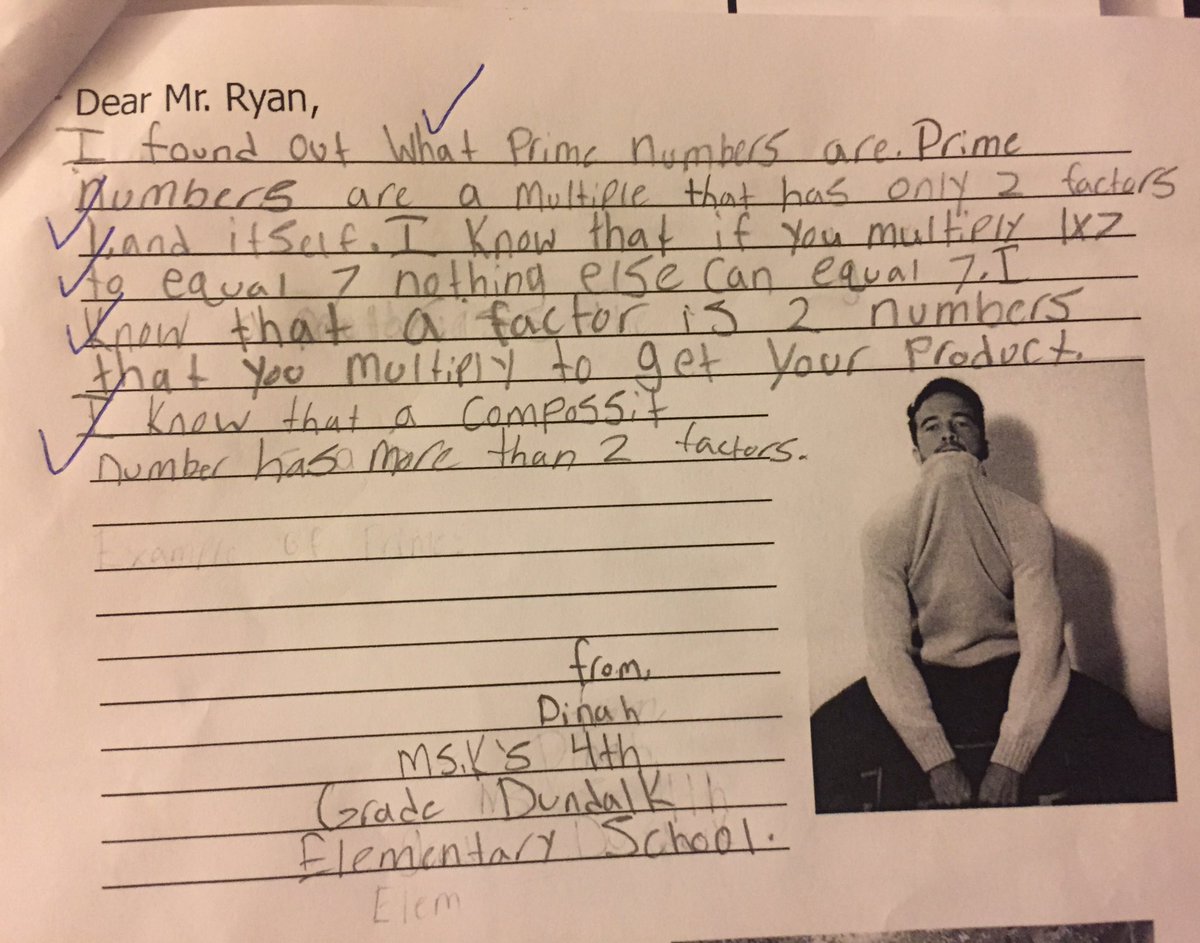 Dear Mr. Ryan,
I found out what Prime numbers are. Prime
numbers are a multiple that has only 2 factors
1, and itself. I know that if you multiply 1x7
to equal 7 nothing else can equal 7. I
know that a factor is 2 numbers
that you multiply to get your product.
I know that a Compossit
number has more than 2 factors.
Example of
from,
Dinah
MS.K's 4th
Grade Dundalk
Elementary School.
Elem